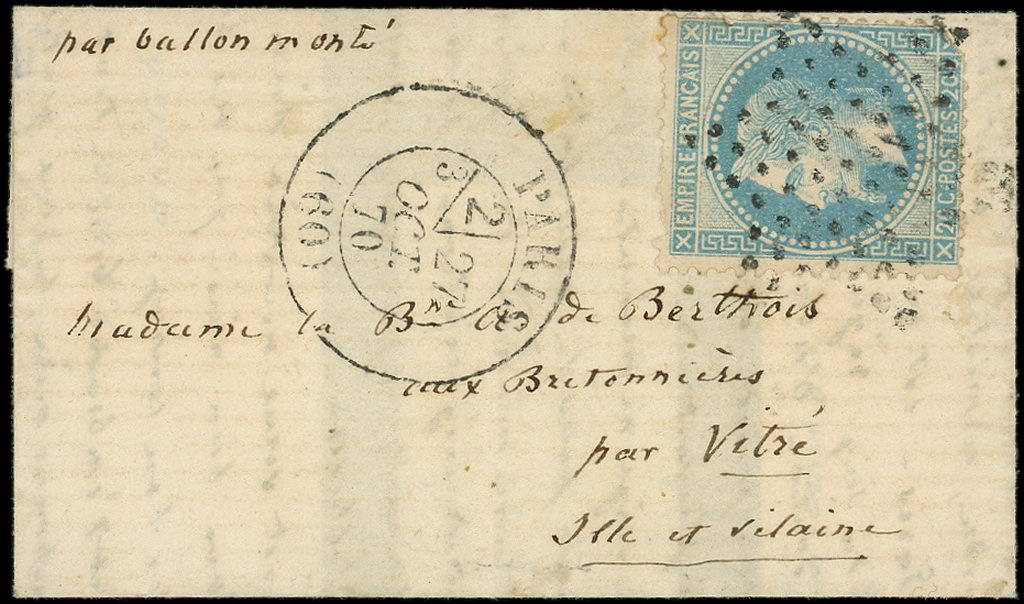 par ballon monté
EMPIRE FRANCAIS
20 C. POSTES 20 C.
PARIS
3
2
27
OCT.
70
(60)
Madame la Bne A. de Berthois
aux Bretonnières
par Vitré
Ille et Vilaine